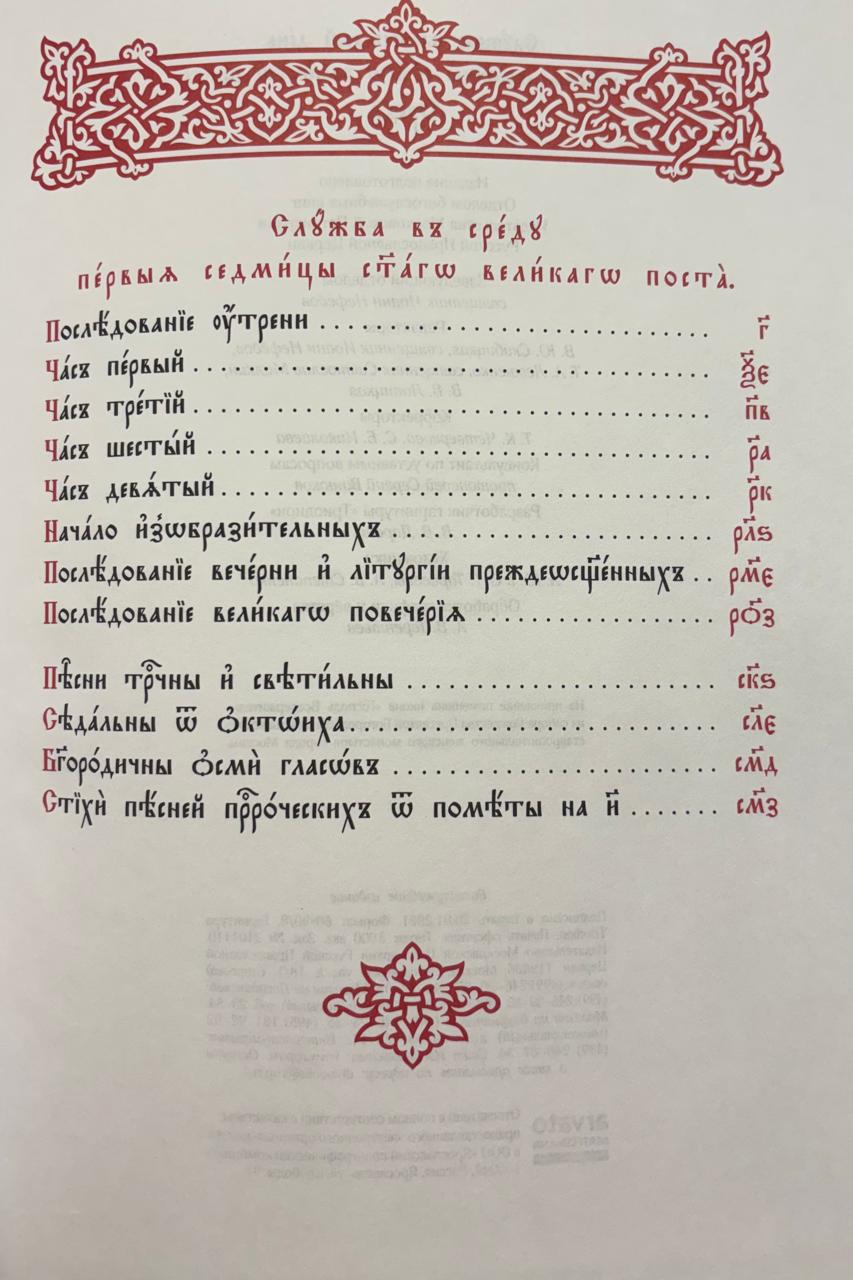 Слꙋ́жба въ сре́дꙋ
пе́рвыѧ седми́цы ст҃а́гѡ вели́кагѡ поста̀.
Послѣ́дованїе ᲂу҆́трени . . . . . . . . . . . . . . . . . . . . . . . . . . г҃
Ча́съ пе́рвый . . . . . . . . . . . . . . . . . . . . . . . . . . . . . . . . . . ѯ҃є
Ча́съ тре́тїй . . . . . . . . . . . . . . . . . . . . . . . . . . . . . . . . . . п҃в
Ча́съ шесты́й . . . . . . . . . . . . . . . . . . . . . . . . . . . . . . . . . р҃а
Ча́съ девѧ́тый . . . . . . . . . . . . . . . . . . . . . . . . . . . . . . . . р҃к
Нача́ло и҆з̾ѡбрази́тельныхъ . . . . . . . . . . . . . . . . . . . . . рл҃ѕ
Послѣ́дованїе вече́рни и҆ лїтꙋргі́и преждеѡсщ҃е́нныхъ . . рм҃є
Послѣ́дованїе вели́кагѡ повече́рїѧ . . . . . . . . . . . . . . . рѻ҃з
Пѣ̑сни трⷪ҇чны и҆ свѣти́льны . . . . . . . . . . . . . . . . . . . . ск҃ѕ
Сѣда́льны ѿ ѻ҆ктѡ́иха . . . . . . . . . . . . . . . . . . . . . . . . сл҃є
Бг҃оро́дичны ѻ҆смѝ гласѡ́въ . . . . . . . . . . . . . . . . . . . . . см҃д
Стїхѝ пѣ́сней прⷪ҇ро́ческихъ ѿ помѣ́ты на и҃ . . . . . . . см҃з